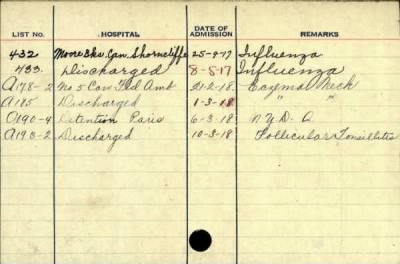 LIST NO. HOSPITAL DATE OF ADMISSION REMARKS
432 Moore Bks. Can. Shorncliffe 25-9-17 Influenza
433 Discharged 8-5-17 Influenza
A178-2 No 5 Can Fld Amb 21-2-18 Eczema Neck
A185 Discharged 1-3-18 " "
A190-4 Detention Paris 6-3-18 N.Y.D. Q
A193-2 Discharged 10-3-18 Follicular Tonsillitis